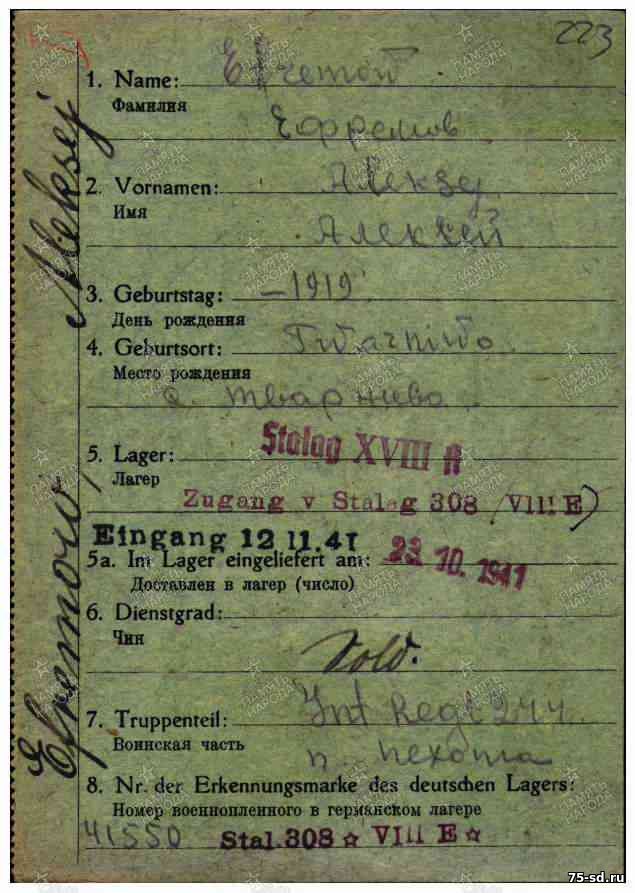 223
1. Name: Efremow
Фамилия
Ефремов
2. Vornamen: Aleksej
Имя
Алексей
3. Geburtstag: —1919
День рождения
4. Geburtsort:
Место рождения
5. Lager: Stalag XVIII A
Лагер
Zugang v Stalag 308 (VIII E)
Eingang 12 11.41
5a. Im Lager eingeliefert am: 23 10. 1941
Доставлен в лагер (число)
6. Dienstgrad:
Чин
Sold.
7. Truppenteil: Inf Regt 244
Воинская часть
п. пехота
8. Nr. der Erkennungsmarke des deutschen Lagers:
Номер военнопленного в германском лагере
41550 Stal. 308 ☆ VIII E ☆
Efremow Aleksej
ПАМЯТЬ НАРОДА
75-sd.ru